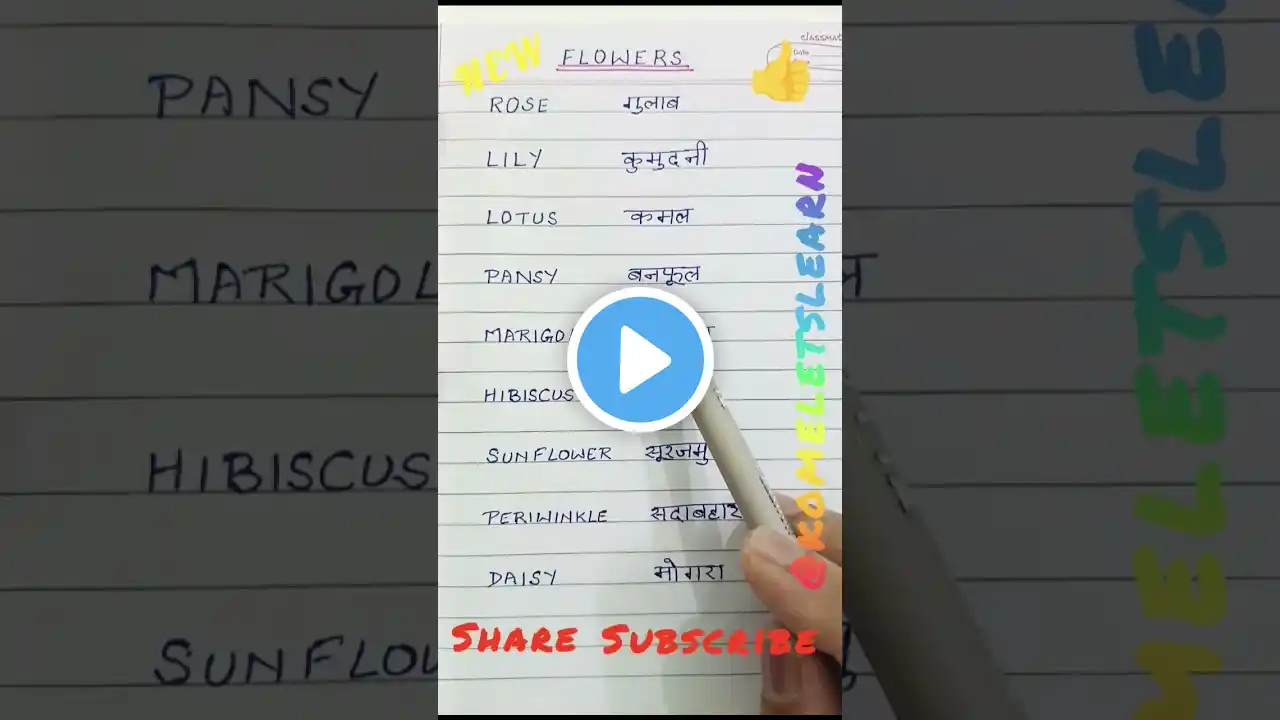 NEW FLOWERS
classmat
Date
ROSE गुलाब
LILY कुमुदनी
LOTUS कमल
PANSY बनफूल
MARIGOL
HIBISCUS
SUNFLOWER सूरजमु
PERIWINKLE सदाबहार
DAISY मोगरा
@KOMELETSLEARN
SHARE SUBSCRIBE
PANSY
MARIGOL
HIBISCUS
SUNFLOW
MELETSLE